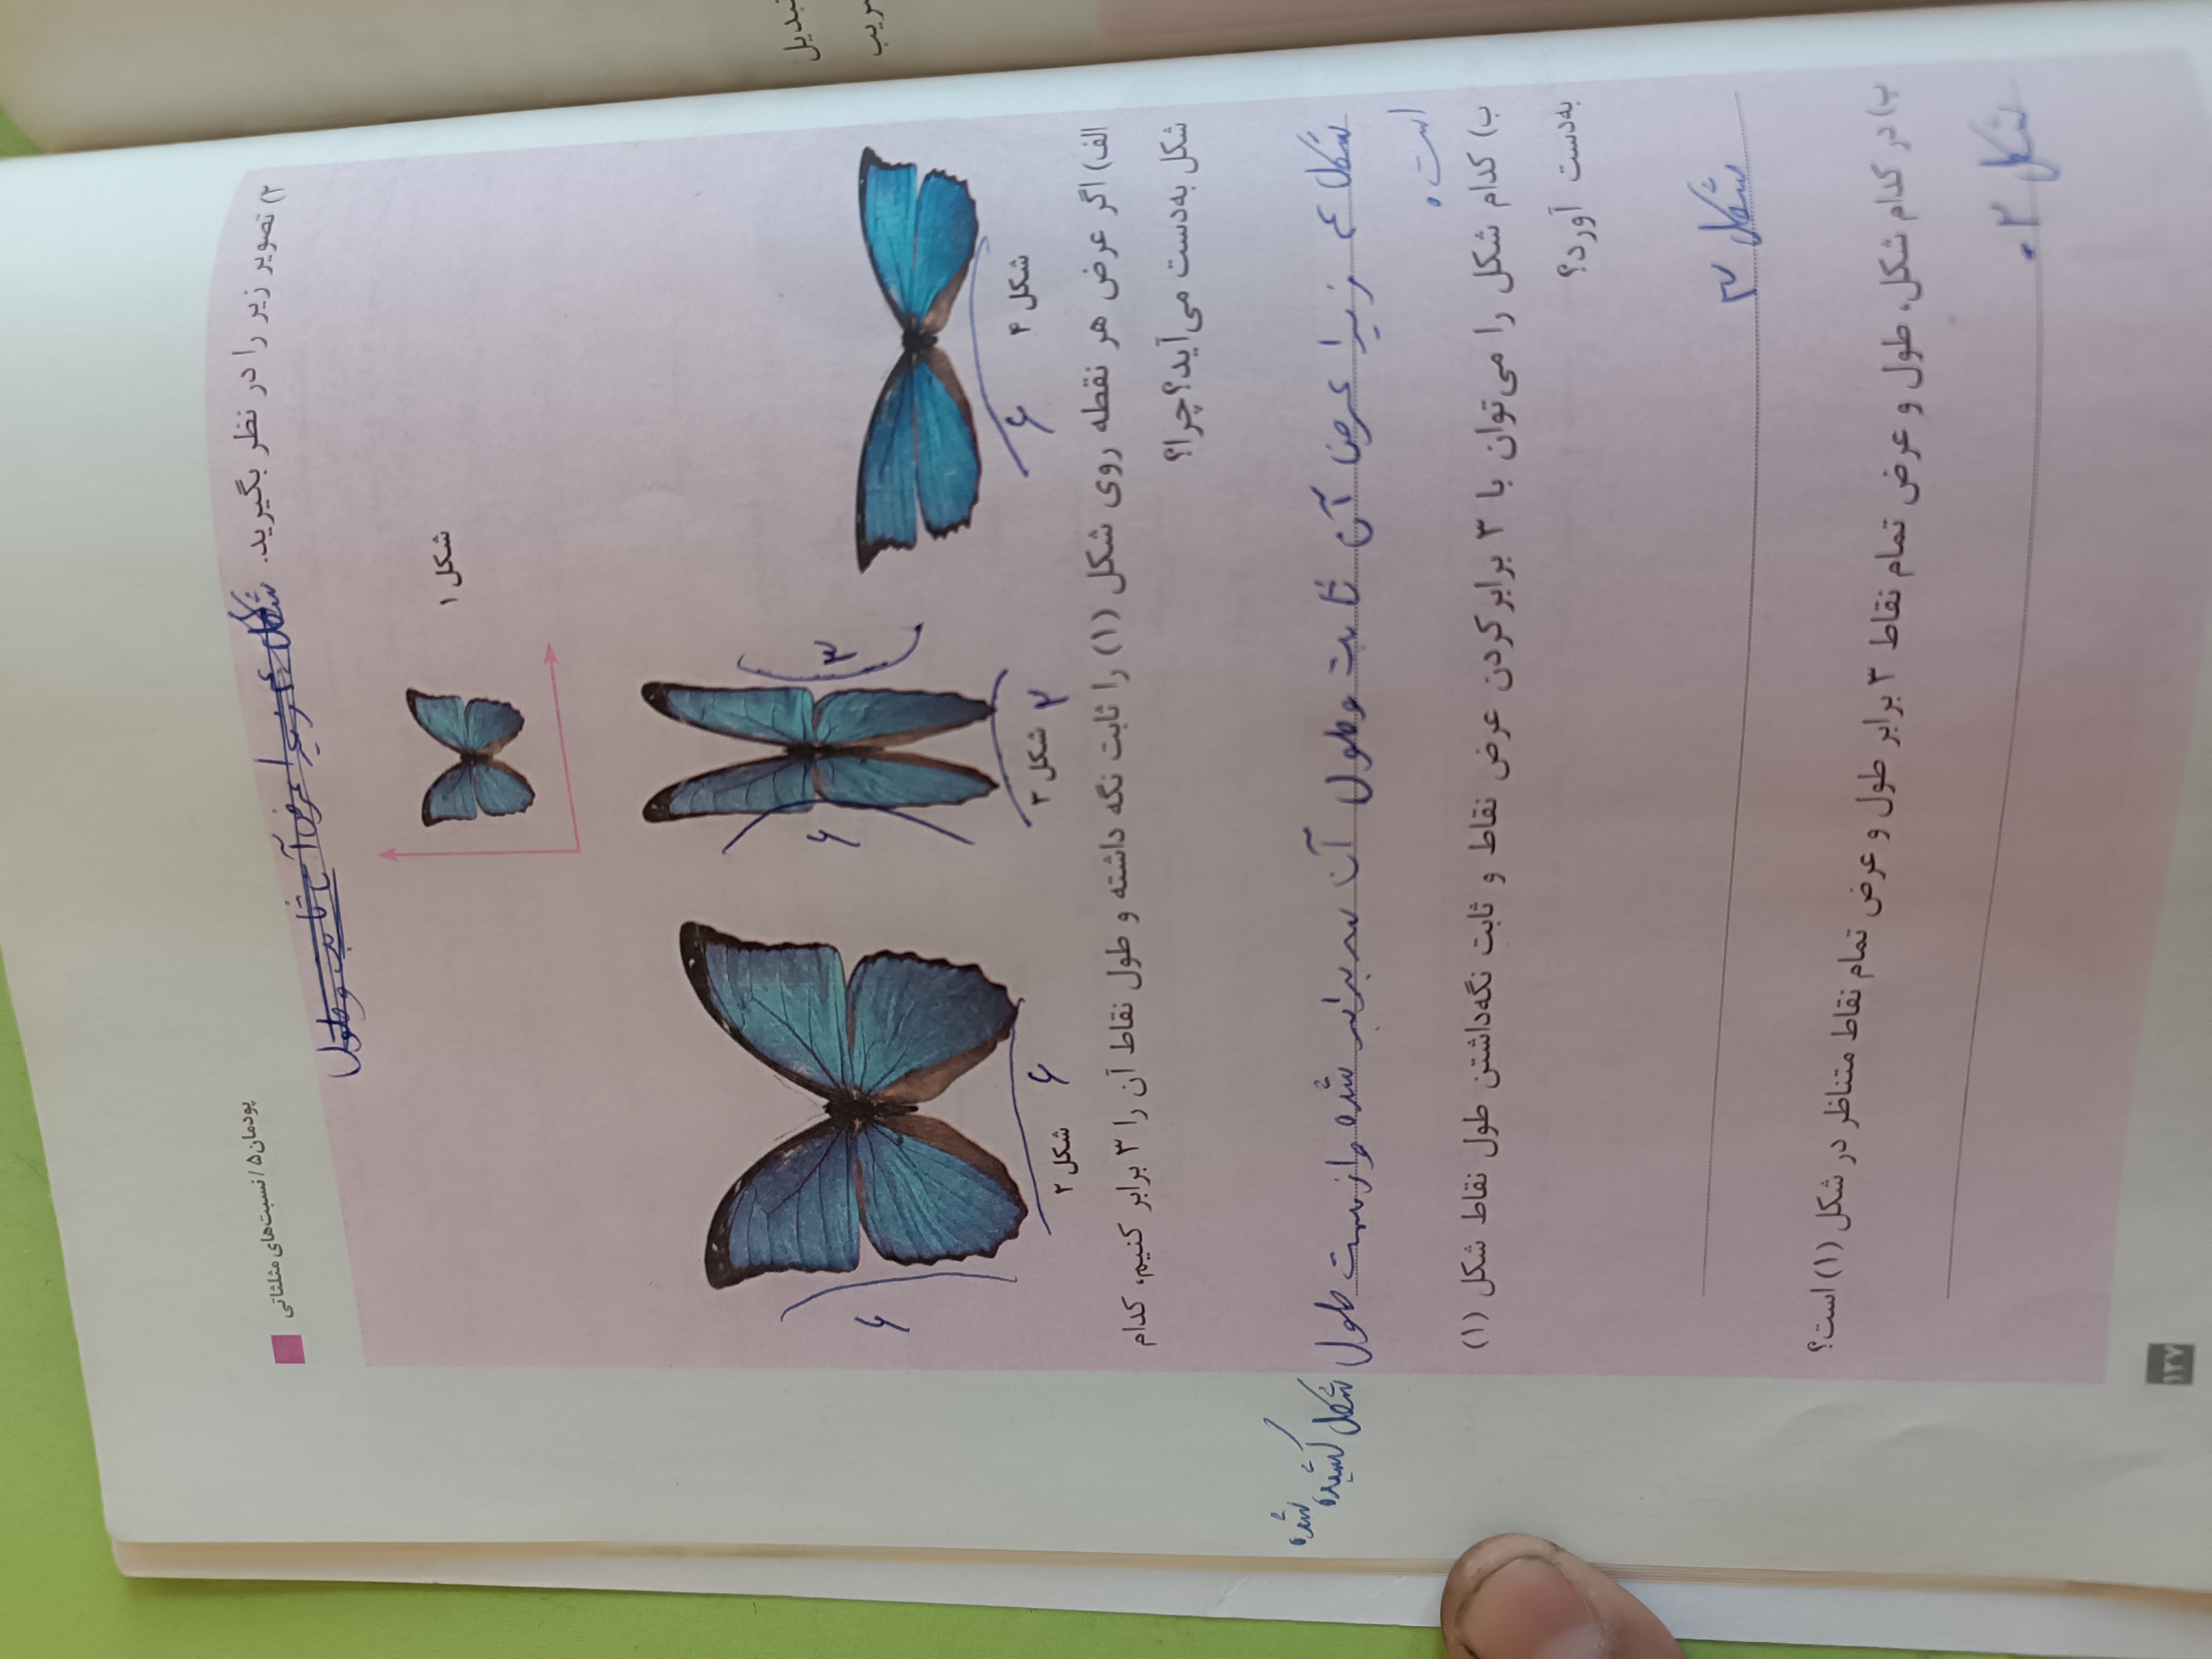 پودمان ۵ / نسبت‌های مثلثاتی
۲) تصویر زیر را در نظر بگیرید.
شکل ۴ زیرا عرض آن ثابت و طول
شکل ۱
۶
۶
۳
شکل ۲
۶
شکل ۳
۲
شکل ۴
۶
الف) اگر عرض هر نقطه روی شکل (۱) را ثابت نگه داشته و طول نقاط آن را ۳ برابر کنیم، کدام
شکل به‌دست می‌آید؟ چرا؟
شکل ۴ زیرا عرض آن ثابت و طول آن سه برابر شده و از سمت طول شکل کشیده شده
است.
ب) کدام شکل را می‌توان با ۳ برابر کردن عرض نقاط و ثابت نگه‌داشتن طول نقاط شکل (۱)
به‌دست آورد؟
شکل ۳
پ) در کدام شکل، طول و عرض تمام نقاط ۳ برابر طول و عرض تمام نقاط متناظر در شکل (۱) است؟
شکل ۲.
۱۳۷
تبدیل